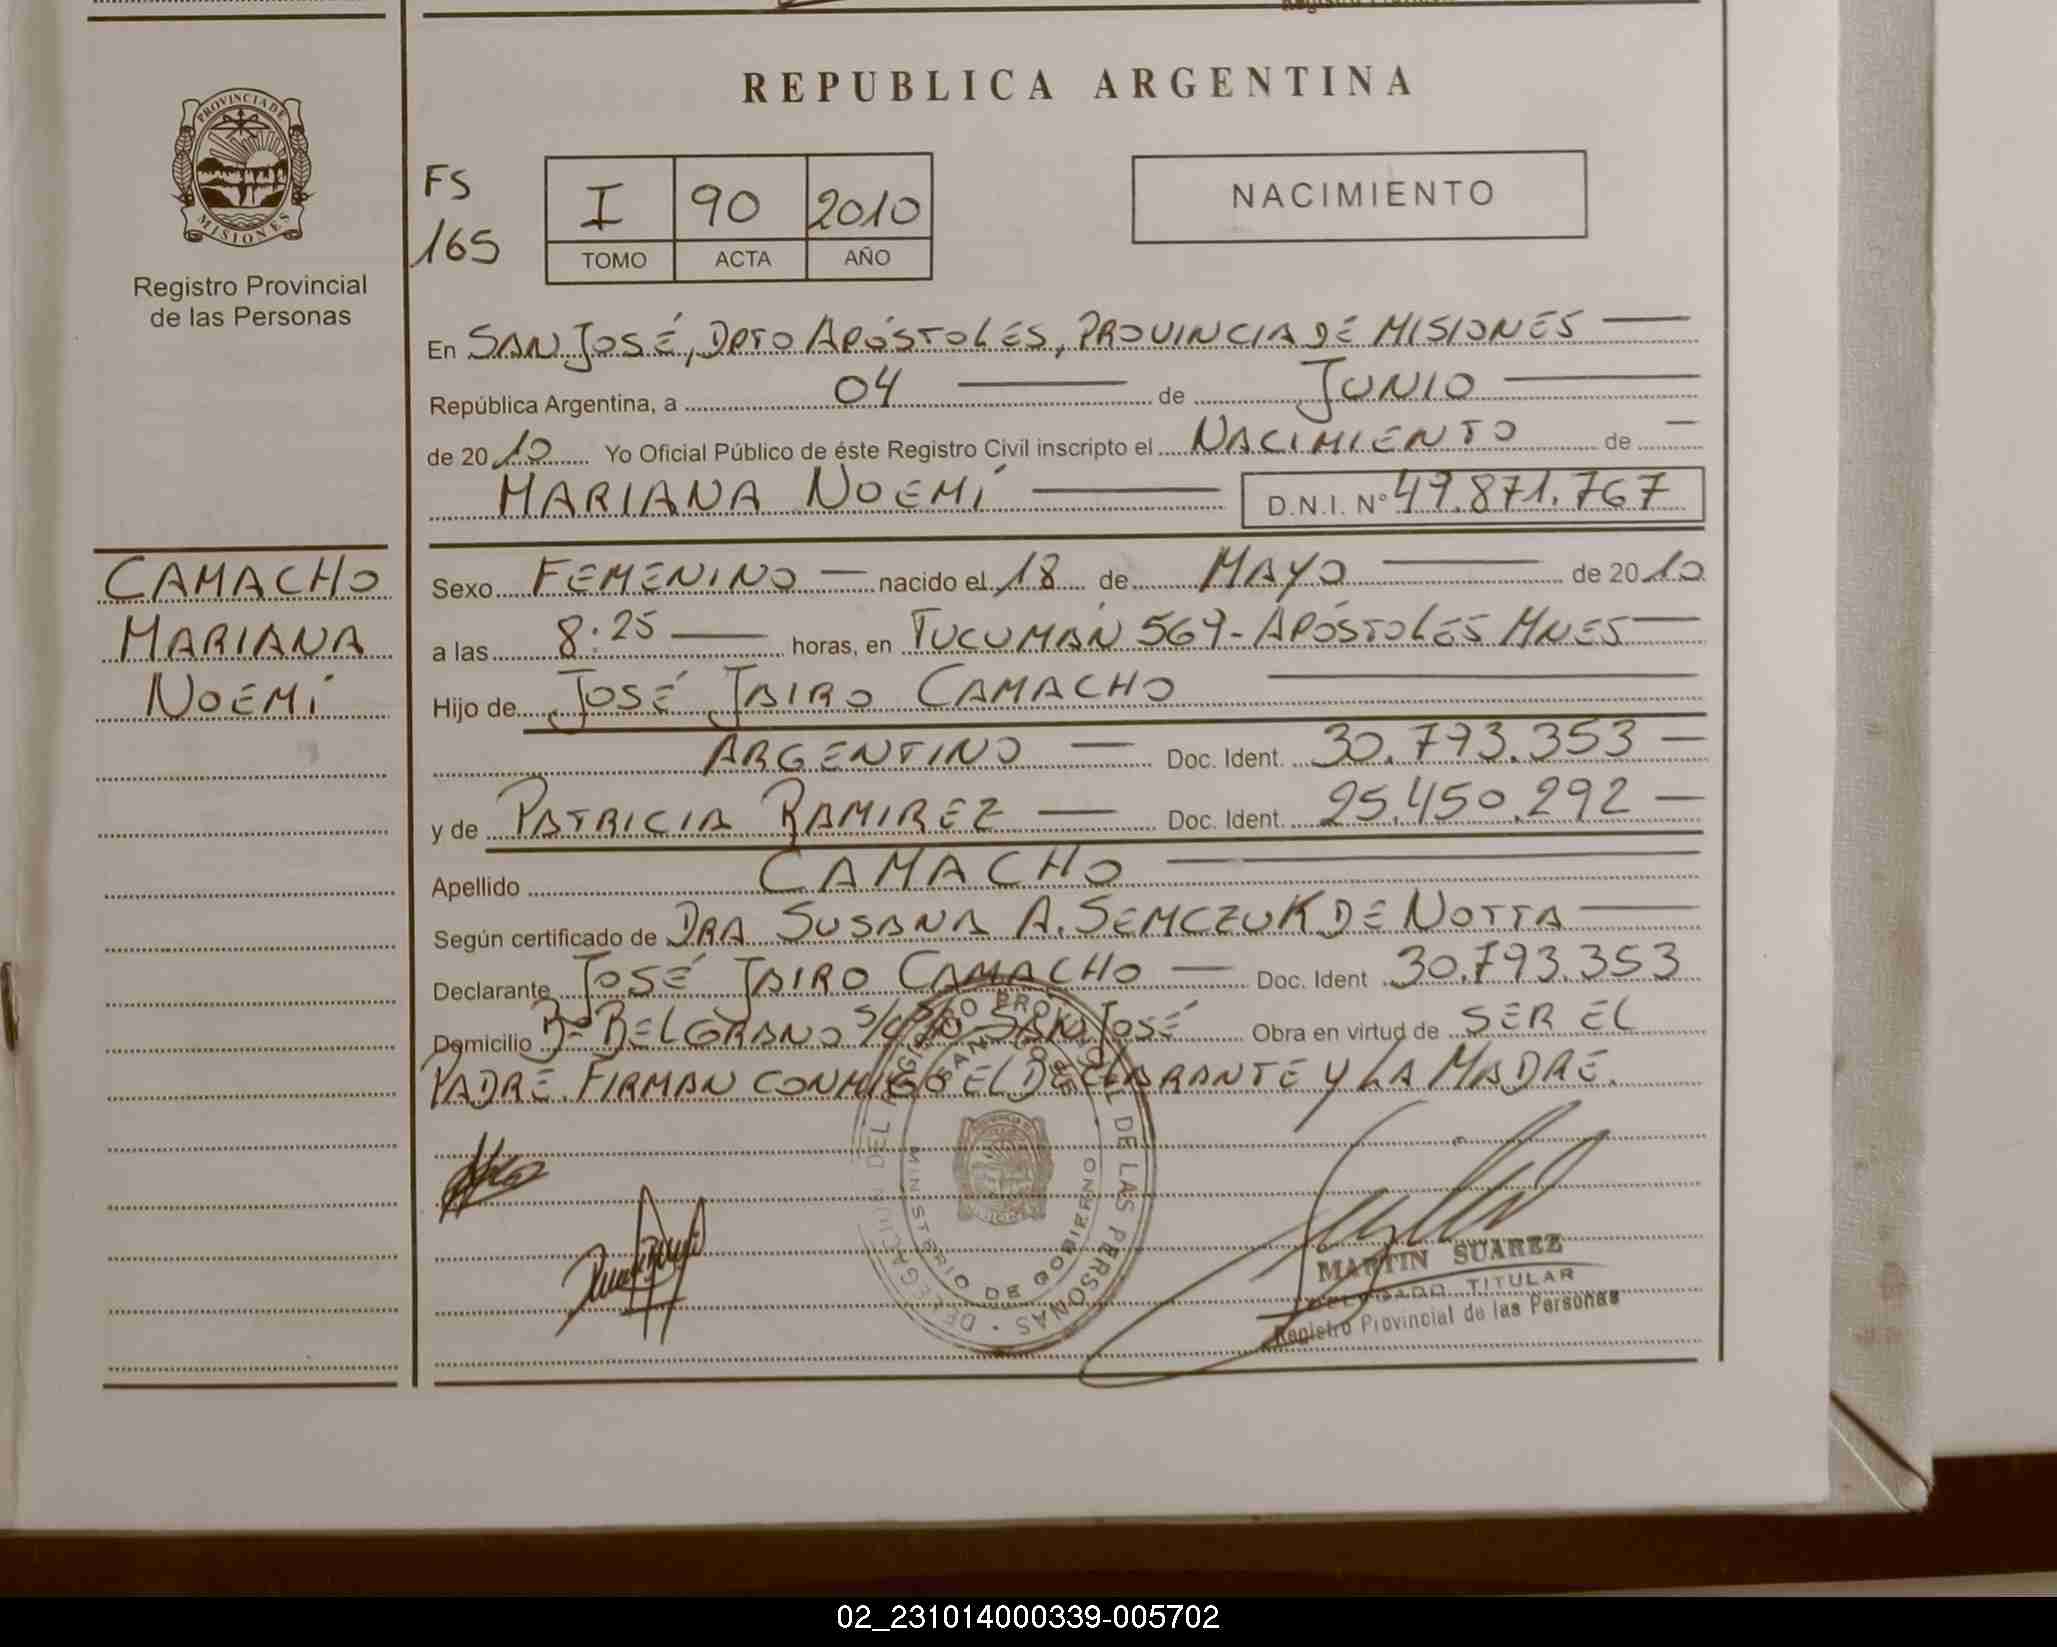 REPUBLICA ARGENTINA
PROVINCIA DE MISIONES
Registro Provincial
de las Personas
FS
165
I 90 2010
TOMO ACTA AÑO
NACIMIENTO
En SAN JOSÉ, DPTO APÓSTOLES, PROVINCIA DE MISIONES
República Argentina, a 04 de JUNIO
de 2010 Yo Oficial Público de éste Registro Civil inscripto el NACIMIENTO de —
MARIANA NOEMÍ D.N.I. Nº 49.871.767
CAMACHO
MARIANA
NOEMÍ
Sexo FEMENINO — nacido el 18 de MAYO de 2010
a las 8:25 horas, en TUCUMÁN 569 - APÓSTOLES MNES
Hijo de JOSÉ JAIRO CAMACHO
ARGENTINO — Doc. Ident. 30.793.353 —
y de PATRICIA RAMIREZ — Doc. Ident. 25.450.292 —
Apellido CAMACHO
Según certificado de DRA SUSANA A. SEMCZUK DE NOTTA
Declarante JOSÉ JAIRO CAMACHO — Doc. Ident 30.793.353
Domicilio Bº BELGRANO SAN JOSÉ Obra en virtud de SER EL
PADRE. FIRMAN CONMIGO EL DECLARANTE Y LA MADRE.
DEL REGISTRO PROVINCIAL DE LAS PERSONAS
SAN JOSE
MINISTERIO DE GOBIERNO
MARTIN SUAREZ
DELEGADO TITULAR
Registro Provincial de las Personas
02_231014000339-005702